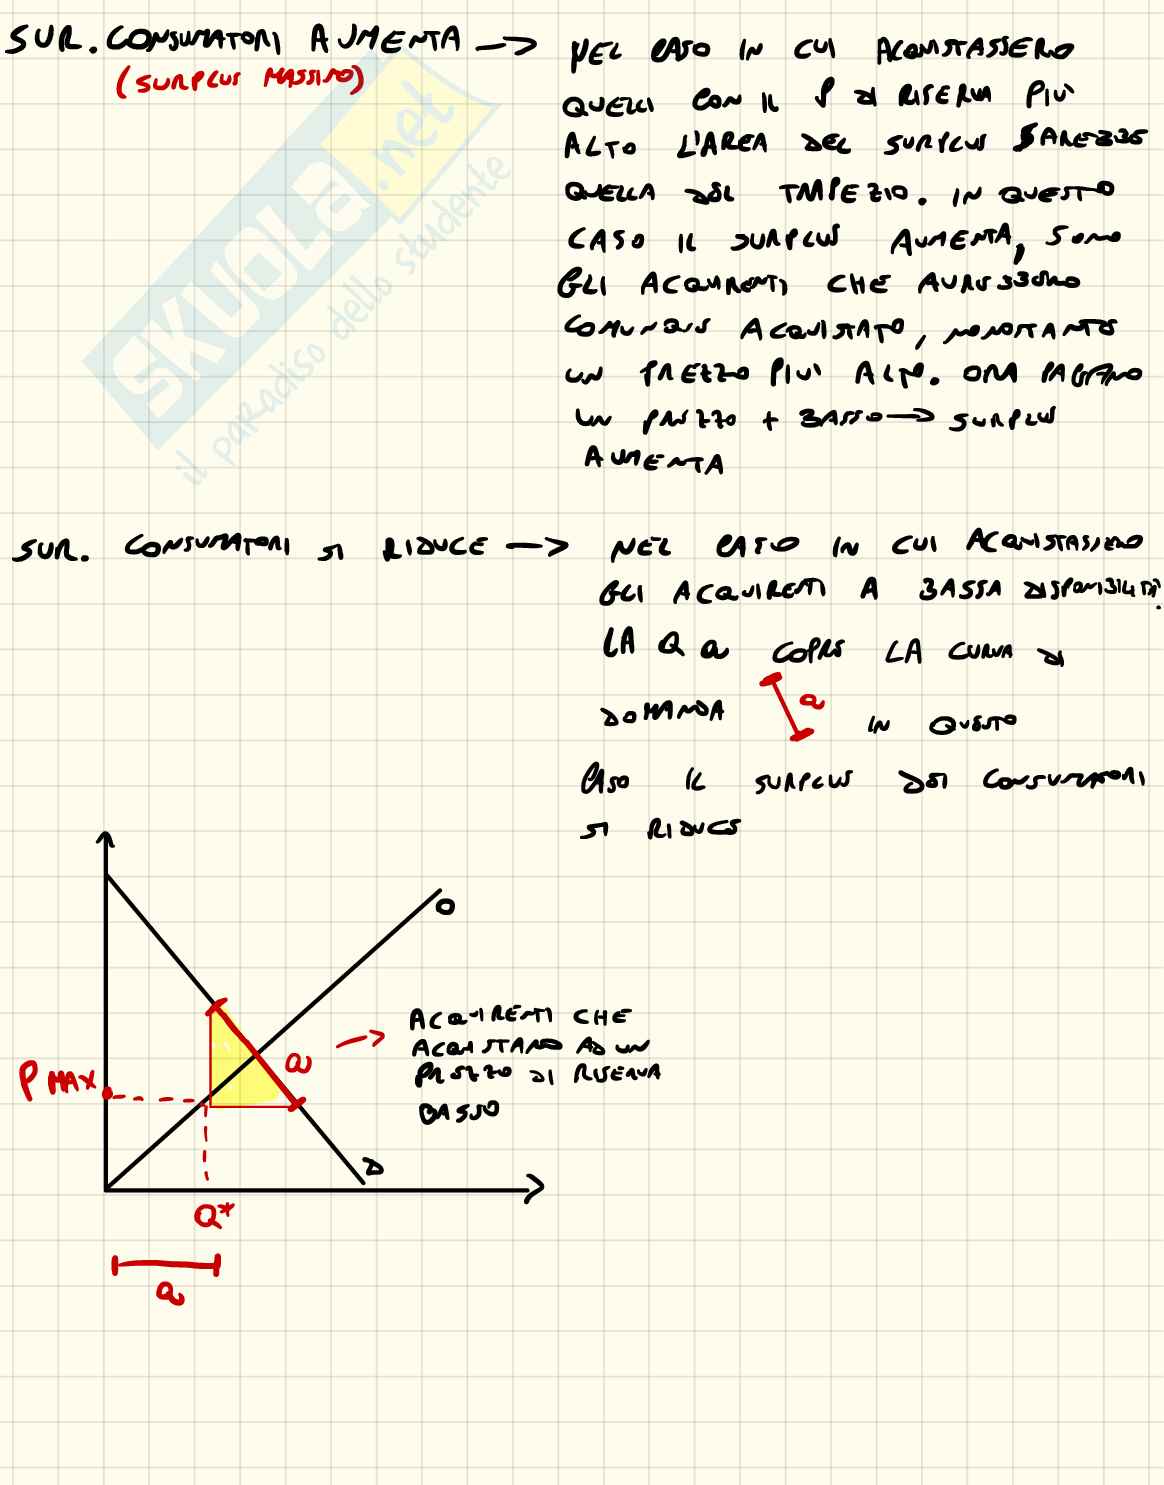 SUR. CONSUMATORI AUMENTA → NEL CASO IN CUI ACQUISTASSERO
(SURPLUS MASSIMO)
QUELLI CON IL P DI RISERVA PIÙ
ALTO L'AREA DEL SURPLUS SAREBBE
QUELLA DEL TRAPEZIO. IN QUESTO
CASO IL SURPLUS AUMENTA, SONO
GLI ACQUIRENTI CHE AVREBBERO
COMUNQUE ACQUISTATO, NONOSTANTE
UN PREZZO PIÙ ALTO. ORA PAGANO
UN PREZZO + BASSO → SURPLUS
AUMENTA
SKUOLA.net
il paradiso dello studente
SUR. CONSUMATORI SI RIDUCE → NEL CASO IN CUI ACQUISTASSERO
GLI ACQUIRENTI A BASSA DISPONIBILITÀ.
LA Q a COPRE LA CURVA DI
DOMANDA a IN QUESTO
CASO IL SURPLUS DEI CONSUMATORI
SI RIDUCE
O
ACQUIRENTI CHE
ACQUISTANO AD UN
PREZZO DI RISERVA
BASSO
a
P MAX
D
Q*
a